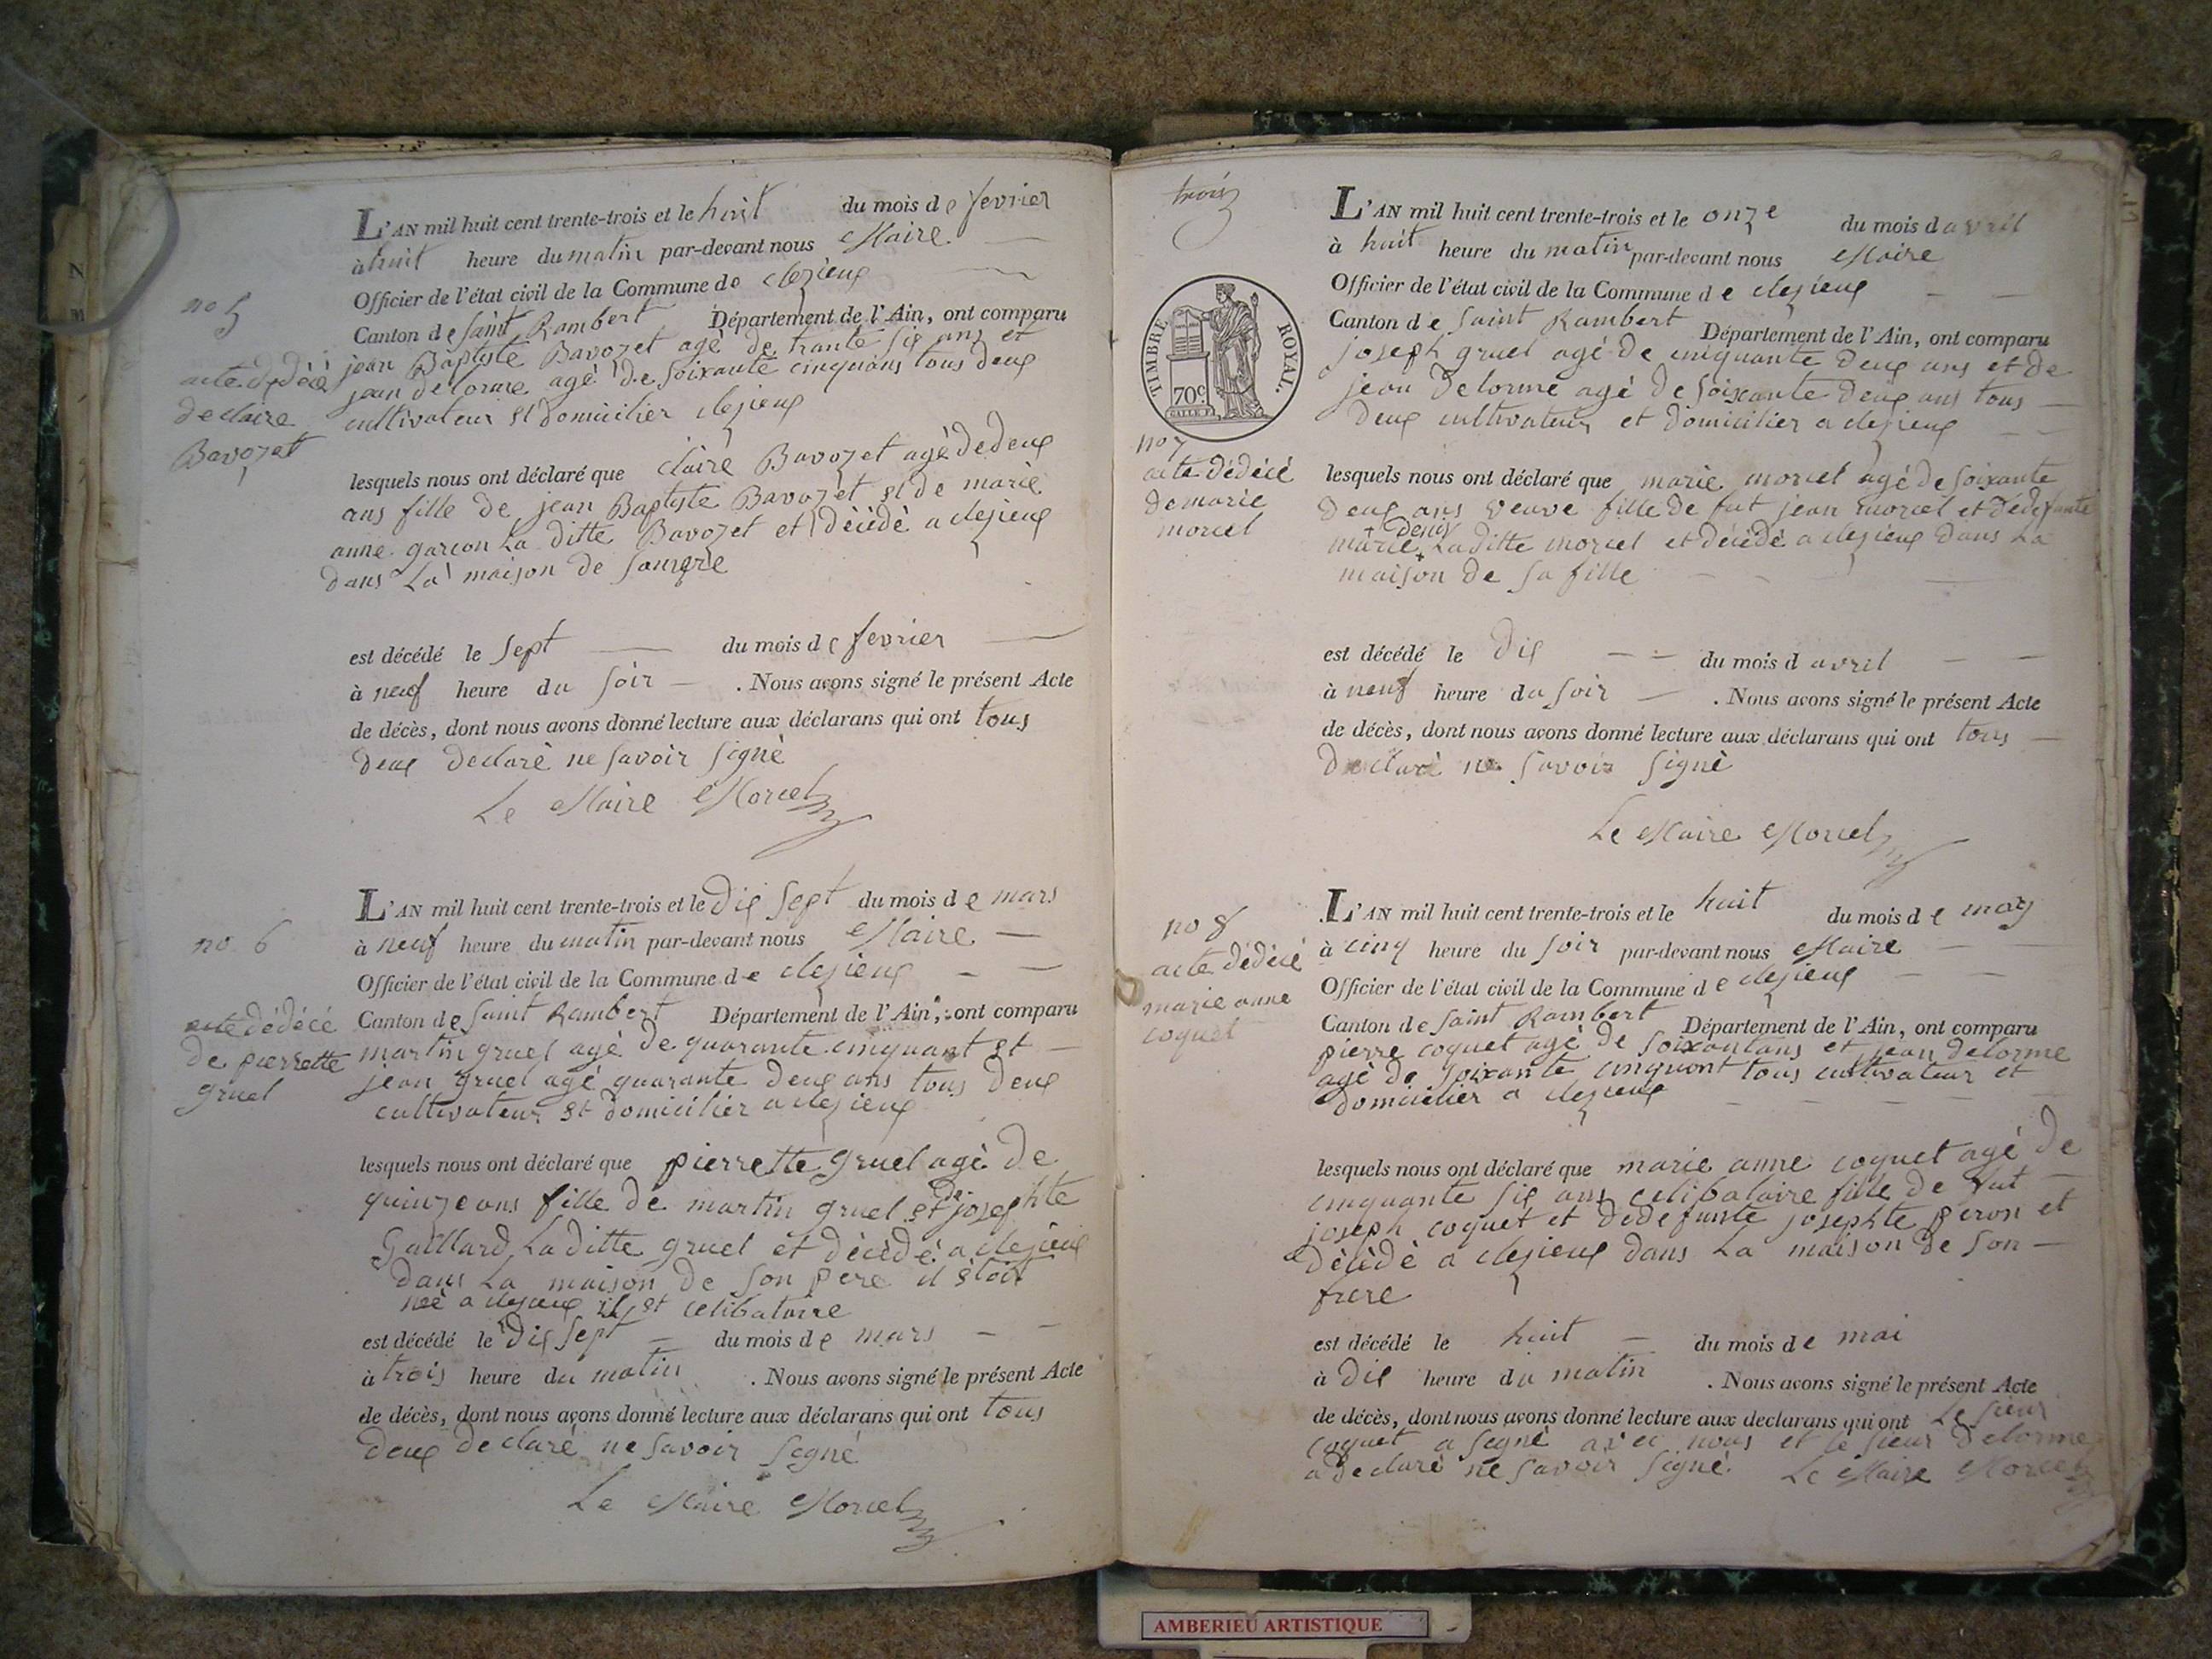 L'AN mil huit cent trente-trois et le huit du mois de fevrier
à huit heure du matin par-devant nous Maire
Officier de l'état civil de la Commune de clezieux
Canton de saint Rambert Département de l'Ain, ont comparu
jean Baptiste Bavozet agé de trante six ans et
jean delorme agé de soixante cinquans tous deux
cultivateur et domicilier clezieux
no 5
acte dedécé
de claire
Bavozet
lesquels nous ont déclaré que claire Bavozet agé de deux
ans fille de jean Baptiste Bavozet et de marie
anne garcon La ditte Bavozet et décédé a clezieux
dans La maison de
est décédé le sept du mois de fevrier
à neuf heure du soir . Nous avons signé le présent Acte
de décès, dont nous avons donné lecture aux déclarans qui ont tous
deux declaré ne savoir signé
Le Maire Morcel
L'AN mil huit cent trente-trois et le dix sept du mois de mars
à neuf heure du matin par-devant nous Maire
Officier de l'état civil de la Commune de clezieux
Canton de saint Rambert Département de l'Ain, ont comparu
martin gruel agé de quarante cinquant et
jean gruel agé quarante deux ans tous deux
cultivateur et domicilier a clezieux
no 6
acte dédécé
de pierrette
gruel
lesquels nous ont déclaré que pierrette gruel agé de
quinze ans fille de martin gruel et de josephte
Gaillard La ditte gruel et décédé a clezieux
dans La maison de son pere il etoit
né a clezieux il et celibataire
est décédé le dix sept du mois de mars
à trois heure du matin . Nous avons signé le présent Acte
de décès, dont nous avons donné lecture aux déclarans qui ont tous
deux declaré ne savoir signé
Le Maire Morcel
trois
TIMBRE ROYAL.
70c
L'AN mil huit cent trente-trois et le onze du mois d avril
à huit heure du matin par-devant nous Maire
Officier de l'état civil de la Commune de clezieux
Canton de saint Rambert Département de l'Ain, ont comparu
joseph gruel agé de cinquante deux ans et de
jean Delorme agé de soixante deux ans tous
deux cultivateur et domicilier a clezieux
no 7
acte dédécé
de marie
morcel
lesquels nous ont déclaré que marie morcel agé de soixante
deux ans veuve fille de fut jean morcel et dedefunte
+ Deniz
marie + La ditte morcel et décédé a clezieux dans La
maison de sa fille
est décédé le dix du mois d avril
à neuf heure du soir . Nous avons signé le présent Acte
de décès, dont nous avons donné lecture aux déclarans qui ont tous
declaré ne savoir signé
Le Maire Morcel
L'AN mil huit cent trente-trois et le huit du mois de may
à cinq heure du soir par-devant nous Maire
Officier de l'état civil de la Commune de clezieux
Canton de saint Rambert Département de l'Ain, ont comparu
pierre coquet agé de soixantans et jean delorme
agé de soixante cinquont tous cultivateur et
domicilier a clezieux
no 8
acte dédécé
marie anne
coquet
lesquels nous ont déclaré que marie anne coquet agé de
cinquante six ans celibataire fille de fut
joseph coquet et dedefunte josephte peron et
décédé a clezieux dans La maison de son
frere
est décédé le huit du mois de mai
à dix heure du matin . Nous avons signé le présent Acte
de décès, dont nous avons donné lecture aux declarans qui ont Le sieur
coquet a signé avec nous et le sieur delorme
a declaré ne savoir signé. Le Maire Morcel
AMBERIEU ARTISTIQUE